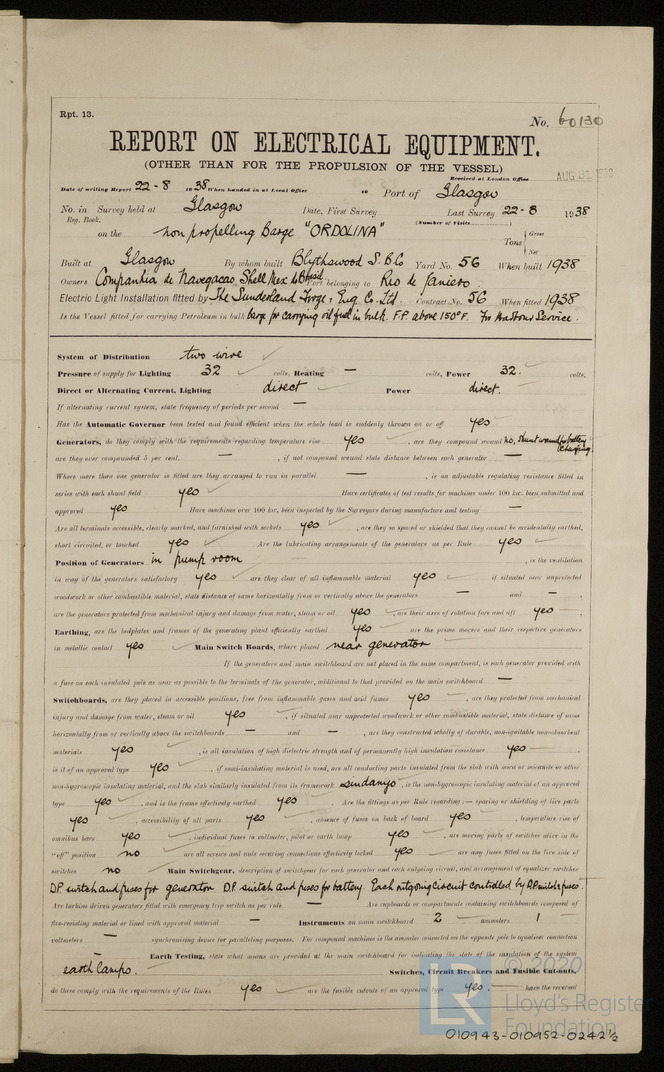 Rpt. 13.
No. 60130
REPORT ON ELECTRICAL EQUIPMENT.
(OTHER THAN FOR THE PROPULSION OF THE VESSEL)
Received at London Office AUG 31 1938
Date of writing Report 22-8 1938 When handed in at Local Office 10 Port of Glasgow
No. in Survey held at Glasgow Date, First Survey Last Survey 22-8 1938
Reg. Book. (Number of Visits)
on the non propelling Barge "ORDOLINA" Tons { Gross Net
Built at Glasgow By whom built Blythswood S.B.Co Yard No. 56 When built 1938
Owners Companhia de Navegacao Shell Mex do Brasil Port belonging to Rio de Janiero
Electric Light Installation fitted by The Sunderland Forge & Eng. Co. Ltd Contract No. 56 When fitted 1938
Is the Vessel fitted for carrying Petroleum in bulk barge for carrying oil fuel in bulk. F.P. above 150°F. For Harbour Service.
System of Distribution two wire
Pressure of supply for Lighting 32 volts, Heating — volts, Power 32. volts.
Direct or Alternating Current, Lighting direct Power direct.
If alternating current system, state frequency of periods per second —
Has the Automatic Governor been tested and found efficient when the whole load is suddenly thrown on or off yes
Generators, do they comply with the requirements regarding temperature rise yes , are they compound wound no, shunt wound for battery charging.
are they over compounded 5 per cent. — , if not compound wound state distance between each generator —
Where more than one generator is fitted are they arranged to run in parallel — , is an adjustable regulating resistance fitted in
series with each shunt field yes Have certificates of test results for machines under 100 kw. been submitted and
approved yes Have machines over 100 kw. been inspected by the Surveyors during manufacture and testing —
Are all terminals accessible, clearly marked, and furnished with sockets yes , are they so spaced or shielded that they cannot be accidentally earthed,
short circuited, or touched yes Are the lubricating arrangements of the generators as per Rule yes
Position of Generators in pump room , is the ventilation
in way of the generators satisfactory yes are they clear of all inflammable material yes if situated near unprotected
woodwork or other combustible material, state distance of same horizontally from or vertically above the generators — and —
are the generators protected from mechanical injury and damage from water, steam or oil yes , are their axes of rotation fore and aft yes
Earthing, are the bedplates and frames of the generating plant efficiently earthed yes are the prime movers and their respective generators
in metallic contact yes Main Switch Boards, where placed near generator
If the generators and main switchboard are not placed in the same compartment, is each generator provided with
a fuse on each insulated pole as near as possible to the terminals of the generator, additional to that provided on the main switchboard —
Switchboards, are they placed in accessible positions, free from inflammable gases and acid fumes yes , are they protected from mechanical
injury and damage from water, steam or oil yes , if situated near unprotected woodwork or other combustible material, state distance of same
horizontally from or vertically above the switchboards — and — , are they constructed wholly of durable, non-ignitable non-absorbent
materials yes , is all insulation of high dielectric strength and of permanently high insulation resistance yes
is it of an approved type yes , if semi-insulating material is used, are all conducting parts insulated from the slab with mica or micanite or other
non-hygroscopic insulating material, and the slab similarly insulated from its framework sindanyo , is the non-hygroscopic insulating material of an approved
type yes , and is the frame effectively earthed yes Are the fittings as per Rule regarding :— spacing or shielding of live parts
yes , accessibility of all parts yes , absence of fuses on back of board yes , temperature rise of
omnibus bars yes , individual fuses to voltmeter, pilot or earth lamp yes , are moving parts of switches alive in the
"off" position no are all screws and nuts securing connections effectively locked yes are any fuses fitted on the live side of
switches no Main Switchgear, description of switchgear for each generator and each outgoing circuit, and arrangement of equaliser switches
DP switch and fuses for generator DP switch and fuses for battery. Each outgoing circuit controlled by DP switch & fuses.
Are turbine driven generators fitted with emergency trip switch as per rule — Are cupboards or compartments containing switchboards composed of
fire-resisting material or lined with approved material — Instruments on main switchboard 2 ammeters 1
voltmeters — synchronising device for paralleling purposes. For compound machines is the ammeter connected on the opposite pole to equaliser connection
— Earth Testing, state what means are provided at the main switchboard for indicating the state of the insulation of the system
earth lamps. Switches, Circuit Breakers and Fusible Cut-outs,
do these comply with the requirements of the Rules yes are the fusible cutouts of an approved type yes. have the reversed
© 2020
LR Lloyd's Register
Foundation
010943-010952-0242½